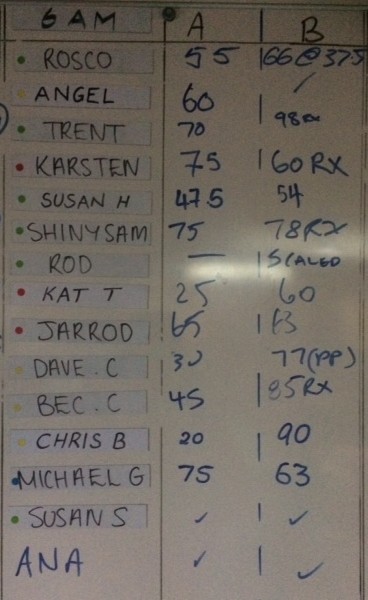 6 AM A B
ROSCO 55 66@37.5
ANGEL 60 ✓
TRENT 70 98rx
KARSTEN 75 60 RX
SUSAN H 47.5 54
SHINYSAM 75 78RX
ROD — SCALED
KAT T 25 60
JARROD 65 63
DAVE.C 30 77(PP)
BEC.C 45 85RX
CHRIS B 20 90
MICHAEL G 75 63
SUSAN S ✓ ✓
ANA ✓ ✓